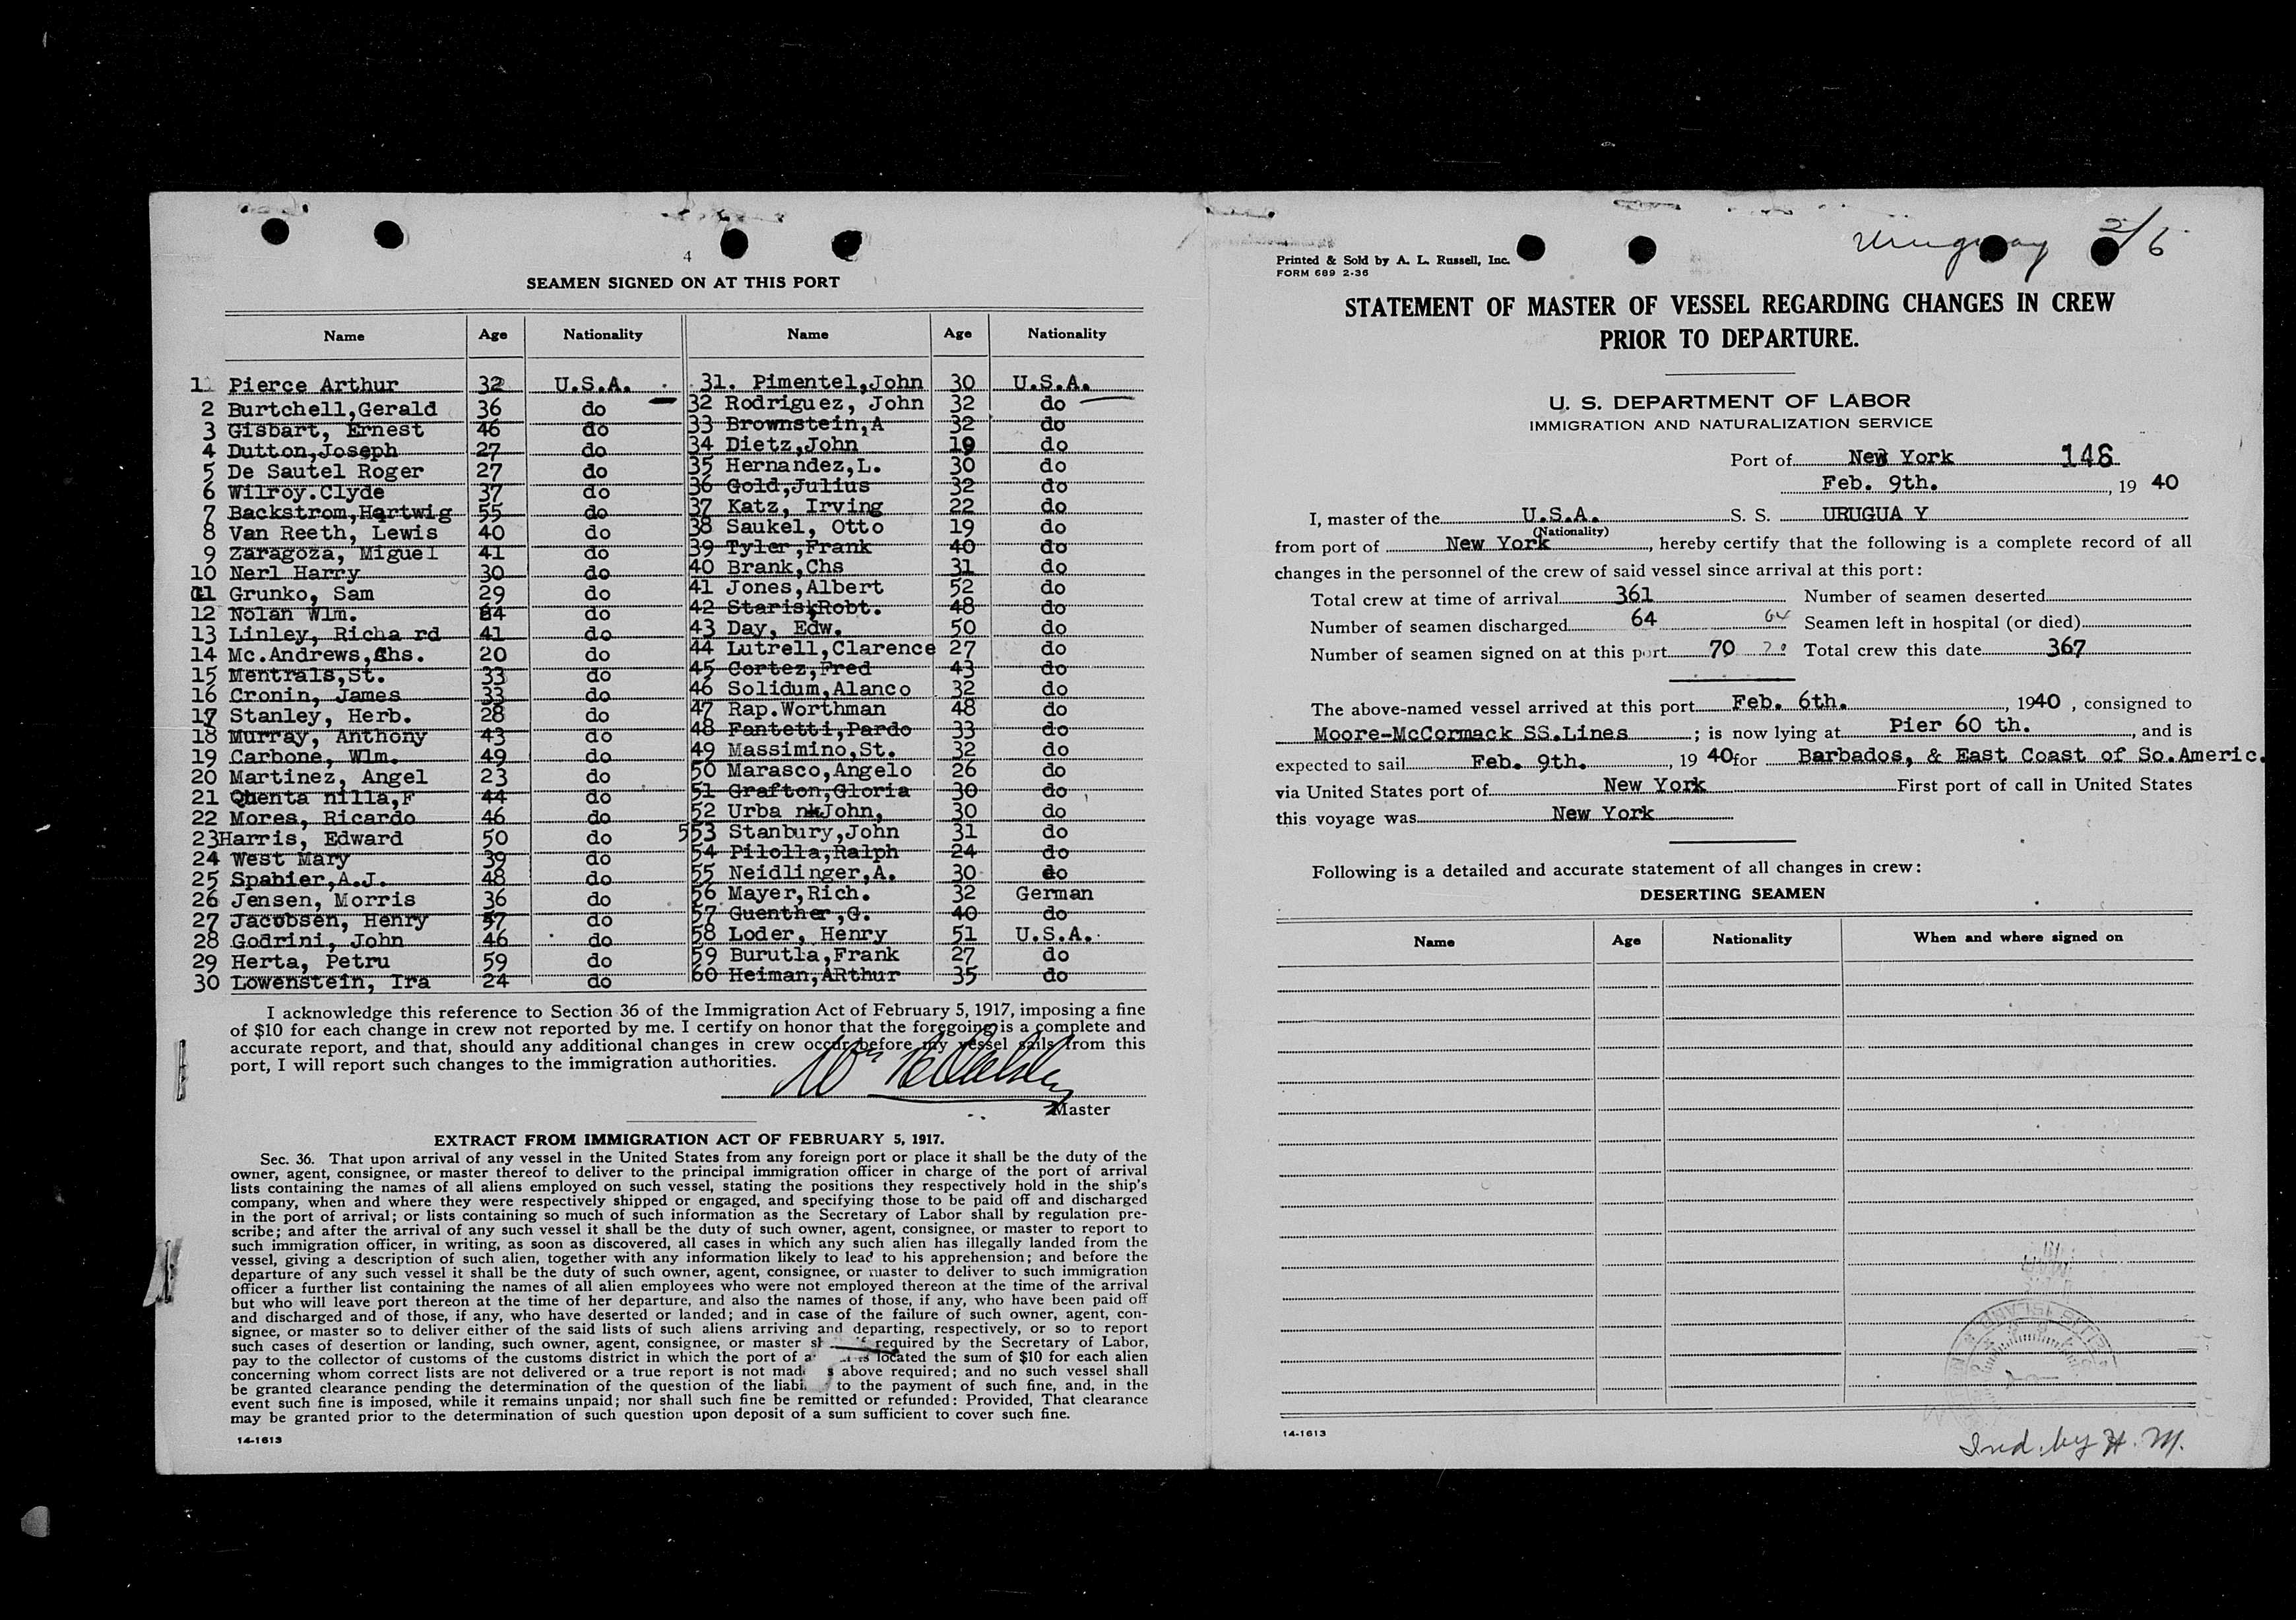 4
SEAMEN SIGNED ON AT THIS PORT
Name Age Nationality Name Age Nationality
1 Pierce Arthur 32 U.S.A. 31. Pimentel,John 30 U.S.A.
2 Burtchell,Gerald 36 do 32 Rodriguez, John 32 do
3 Gisbart, Ernest 46 do 33 Brownstein,A 32 do
4 Dutton,Joseph 27 do 34 Dietz,John 19 do
5 De Sautel Roger 27 do 35 Hernandez,L. 30 do
6 Wilroy.Clyde 37 do 36 Gold,Julius 32 do
7 Backstrom,Hartwig 55 do 37 Katz, Irving 22 do
8 Van Reeth, Lewis 40 do 38 Saukel, Otto 19 do
9 Zaragoza, Miguel 41 do 39 Tyler,Frank 40 do
10 Nerl Harry 30 do 40 Brank,Chs 31 do
11 Grunko, Sam 29 do 41 Jones,Albert 52 do
12 Nolan Wlm. 64 do 42 Starisk,Robt. 48 do
13 Linley, Richa rd 41 do 43 Day, Edw. 50 do
14 Mc.Andrews,Chs. 20 do 44 Lutrell,Clarence 27 do
15 Mentrals,St. 33 do 45 Cortez,Fred 43 do
16 Cronin, James 33 do 46 Solidum,Alanco 32 do
17 Stanley, Herb. 28 do 47 Rap.Worthman 48 do
18 Murray, Anthony 43 do 48 Fantetti,Pardo 33 do
19 Carbone, Wlm. 49 do 49 Massimino,St. 32 do
20 Martinez, Angel 23 do 50 Marasco,Angelo 26 do
21 Quenta nilla,F 44 do 51 Grafton,Gloria 30 do
22 Mores, Ricardo 46 do 52 Urba nk John, 30 do
23Harris, Edward 50 do 553 Stanbury,John 31 do
24 West Mary 39 do 54 Pilolla,Ralph 24 do
25 Spahier,A.J. 48 do 55 Neidlinger,A. 30 do
26 Jensen, Morris 36 do 56 Mayer,Rich. 32 German
27 Jacobsen, Henry 57 do 57 Guenther,G. 40 do
28 Godrini, John 46 do 58 Loder, Henry 51 U.S.A.
29 Herta, Petru 59 do 59 Burutla,Frank 27 do
30 Lowenstein, Ira 24 do 60 Heiman,ARthur 35 do
I acknowledge this reference to Section 36 of the Immigration Act of February 5, 1917, imposing a fine
of $10 for each change in crew not reported by me. I certify on honor that the foregoing is a complete and
accurate report, and that, should any additional changes in crew occur before my vessel sails from this
port, I will report such changes to the immigration authorities.
Master
EXTRACT FROM IMMIGRATION ACT OF FEBRUARY 5, 1917.
Sec. 36. That upon arrival of any vessel in the United States from any foreign port or place it shall be the duty of the
owner, agent, consignee, or master thereof to deliver to the principal immigration officer in charge of the port of arrival
lists containing the names of all aliens employed on such vessel, stating the positions they respectively hold in the ship's
company, when and where they were respectively shipped or engaged, and specifying those to be paid off and discharged
in the port of arrival; or lists containing so much of such information as the Secretary of Labor shall by regulation pre-
scribe; and after the arrival of any such vessel it shall be the duty of such owner, agent, consignee, or master to report to
such immigration officer, in writing, as soon as discovered, all cases in which any such alien has illegally landed from the
vessel, giving a description of such alien, together with any information likely to lead to his apprehension; and before the
departure of any such vessel it shall be the duty of such owner, agent, consignee, or master to deliver to such immigration
officer a further list containing the names of all alien employees who were not employed thereon at the time of the arrival
but who will leave port thereon at the time of her departure, and also the names of those, if any, who have been paid off
and discharged and of those, if any, who have deserted or landed; and in case of the failure of such owner, agent, con-
signee, or master so to deliver either of the said lists of such aliens arriving and departing, respectively, or so to report
such cases of desertion or landing, such owner, agent, consignee, or master required by the Secretary of Labor,
pay to the collector of customs of the customs district in which the port of is located the sum of $10 for each alien
concerning whom correct lists are not delivered or a true report is not made above required; and no such vessel shall
be granted clearance pending the determination of the question of the to the payment of such fine, and, in the
event such fine is imposed, while it remains unpaid; nor shall such fine be remitted or refunded: Provided, That clearance
may be granted prior to the determination of such question upon deposit of a sum sufficient to cover such fine.
14-1613
Uruguay 2/6
Printed & Sold by A. L. Russell, Inc.
FORM 689 2-36
STATEMENT OF MASTER OF VESSEL REGARDING CHANGES IN CREW
PRIOR TO DEPARTURE.
U. S. DEPARTMENT OF LABOR
IMMIGRATION AND NATURALIZATION SERVICE
Port of New York 148
Feb. 9th. , 19 40
I, master of the U.S.A. S. S. URUGUA Y
(Nationality)
from port of New York , hereby certify that the following is a complete record of all
changes in the personnel of the crew of said vessel since arrival at this port:
Total crew at time of arrival 361 Number of seamen deserted
Number of seamen discharged 64 64 Seamen left in hospital (or died)
Number of seamen signed on at this port 70 70 Total crew this date 367
The above-named vessel arrived at this port Feb. 6th. , 1940 , consigned to
Moore-McCormack SS.Lines ; is now lying at Pier 60 th. , and is
expected to sail Feb. 9th. , 19 40 for Barbados, & East Coast of So.Americ.
via United States port of New York First port of call in United States
this voyage was New York
Following is a detailed and accurate statement of all changes in crew:
DESERTING SEAMEN
Name Age Nationality When and where signed on
14-1613
Ind. by H. M.